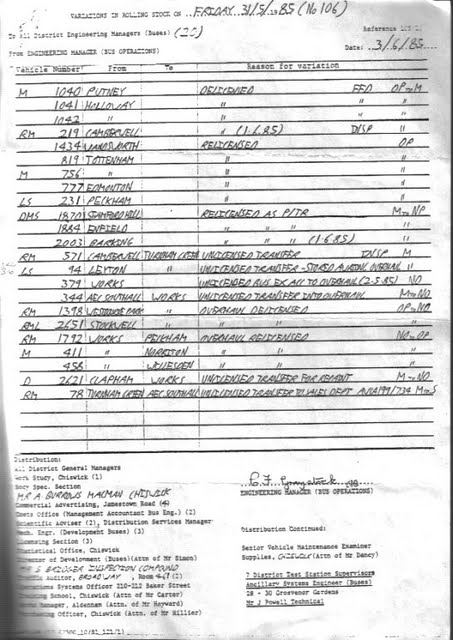 VARIATIONS IN ROLLING STOCK ON FRIDAY 31/5/1985 (No 106)
To All District Engineering Managers (Buses) (20)
Reference
From ENGINEERING MANAGER (BUS OPERATIONS)
Date: 3/6/85
Vehicle Number From To Reason for variation
M 1040 PUTNEY DELICENSED FFD OP to M
1041 HOLLOWAY " " "
1042 " " " "
RM 219 CAMBERWELL " (1.6.85) DISP "
1434 WANDSWORTH RELICENSED OP
819 TOTTENHAM " "
M 756 " " "
777 EDMONTON " "
LS 231 PECKHAM " "
DMS 1870 STAMFORD HILL RELICENSED AS P/TR M to NP
1884 ENFIELD " " " "
2003 BARKING " " " (1.6.85) "
RM 571 CAMBERWELL TURNHAM GREEN UNLICENSED TRANSFER DISP M
LS 94 LEYTON " UNLICENSED TRANSFER - STORED AWAITING OVERHAUL "
379 WORKS UNLICENSED BUS EX ACC TO OVERHAUL (2-5-85) NO
344 AEC SOUTHALL WORKS UNLICENSED TRANSFER INTO OVERHAUL M to NO
RM 1398 WESTBOURNE PARK " OVERHAUL DELICENSED OP to NO
RML 2651 STOCKWELL " " " "
RM 1792 WORKS PECKHAM OVERHAUL RELICENSED NO to OP
M 411 " NORBITON " " "
456 " WILLESDEN " " "
D 2621 CLAPHAM WORKS UNLICENSED TRANSFER FOR REPAINT M to NO
RM 78 TURNHAM GREEN AEC SOUTHALL UNLICENSED TRANSFER TO SALES DEPT M to S
Distribution:
All District General Managers
Work Study, Chiswick (1)
Body Spec. Section
MR A BURROWS MACMAN CHISWICK
Commercial Advertising, Jamestown Road (4)
Costs Office (Management Accountant Bus Eng.) (2)
Scientific Adviser (2), Distribution Services Manager
Mech. Engr. (Development Buses) (3)
Licensing Section (3)
Statistical Office, Chiswick
Director of Development (Buses)(Attn of Mr Simon)
INSPECTION COMPOUND
Traffic Auditor, BROADWAY, Room 467 (2)
Operations Systems Officer 210-212 Baker Street
Training School, Chiswick (Attn of Mr Carter)
Works Manager, Aldenham (Attn. of Mr Hayward)
Officer, Chiswick (Attn of Mr Hillier)
ENGINEERING MANAGER (BUS OPERATIONS)
Distribution Continued:
Senior Vehicle Maintenance Examiner
Supplies, CHISWICK (Attn of Mr Dancy)
7 District Test Station Supervisors
Ancillary Systems Engineer (Buses)
28 - 30 Grosvenor Gardens
Mr J Powell Technical